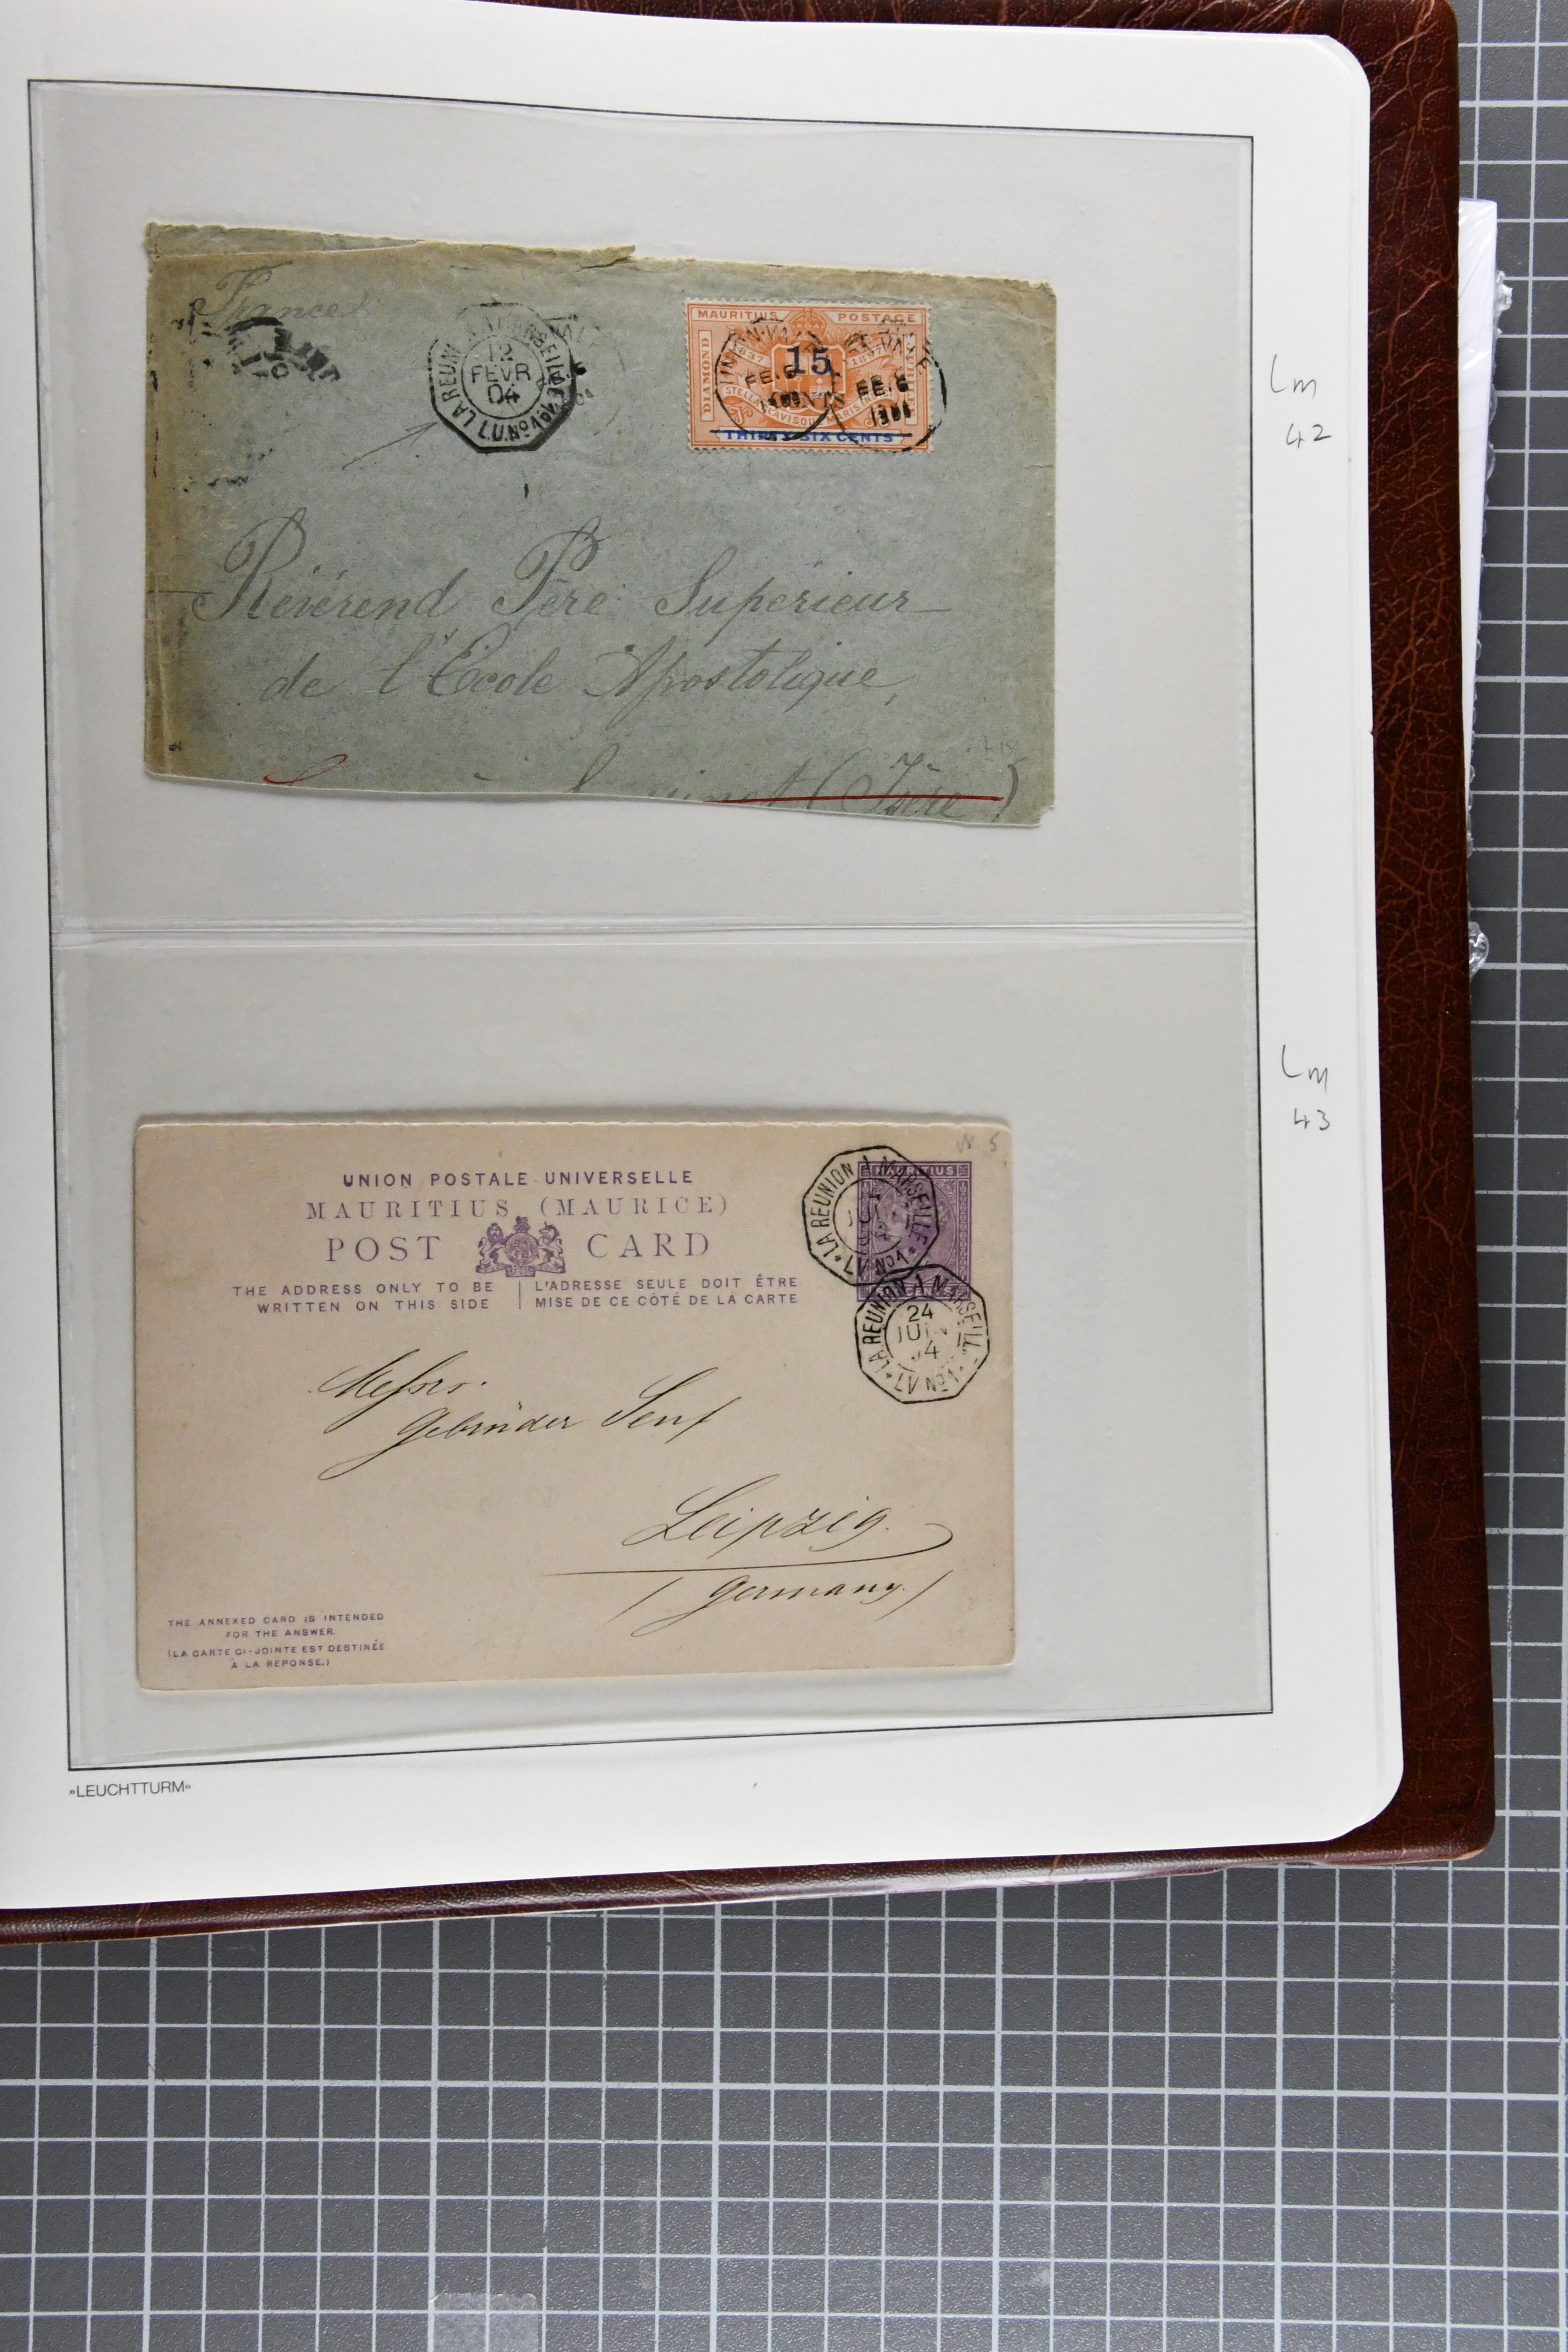 France
12
FEVR
04
MAURITIUS POSTAGE
DIAMOND
1837
1897
15
CENTS
THIRTY SIX CENTS
FE.6
FE.6
Révérend Père Supérieur
de l'École Apostolique,
(Isère)
Lm
42
UNION POSTALE UNIVERSELLE
MAURITIUS (MAURICE)
POST CARD
THE ADDRESS ONLY TO BE
WRITTEN ON THIS SIDE
L'ADRESSE SEULE DOIT ÊTRE
MISE DE CE CÔTÉ DE LA CARTE
MAURITIUS
LA REUNION A MARSEILLE
LV No1
LA REUNION A MARSEILLE
24
JUIN
94
LV No1
Messrs.
Gebrüder Senf
Leipzig.
(Germany.)
THE ANNEXED CARD IS INTENDED
FOR THE ANSWER.
(LA CARTE CI-JOINTE EST DESTINÉE
À LA REPONSE.)
Lm
43
»LEUCHTTURM«